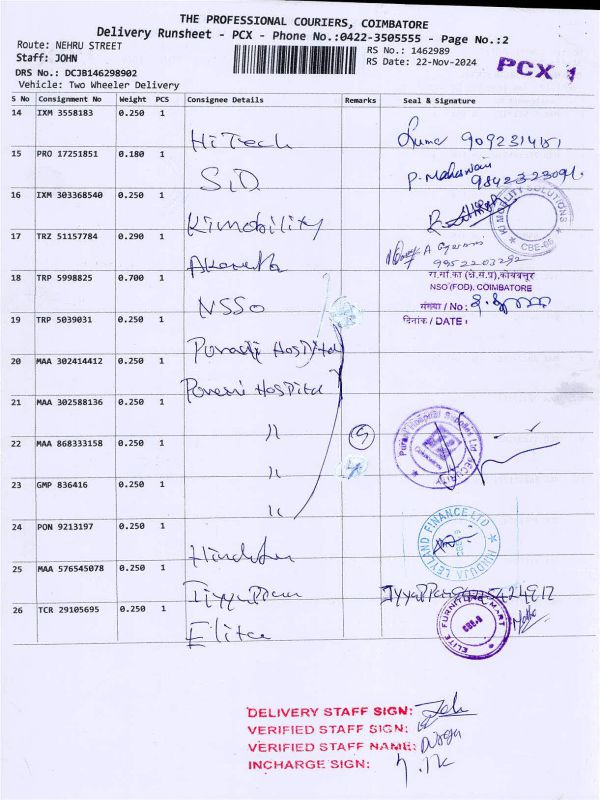 THE PROFESSIONAL COURIERS, COIMBATORE
Delivery Runsheet - PCX - Phone No.:0422-3505555 - Page No.:2
Route: NEHRU STREET
RS No.: 1462989
Staff: JOHN
RS Date: 22-Nov-2024
PCX 1
DRS No.: DCJB146298902
Vehicle: Two Wheeler Delivery
S No Consignment No Weight PCS Consignee Details Remarks Seal & Signature
14 IXM 3558183 0.250 1
HiTech
15 PRO 17251851 0.180 1
P. Maheswari
S.D
16 IXM 303368540 0.250 1
Kimobility
KI MOBILITY SOLUTIONS
CBE-06
17 TRZ 51157784 0.290 1
9952203292
18 TRP 5998825 0.700 1
NSSO
NSO (FOD), COIMBATORE
संख्या / No :
19 TRP 5039031 0.250 1
दिनांक / DATE :
Hospital
20 MAA 302414412 0.250 1
Hospital
21 MAA 302588136 0.250 1
"
22 MAA 868333158 0.250 1
"
SECURITY
23 GMP 836416 0.250 1
"
24 PON 9213197 0.250 1
HINDUJA LEYLAND FINANCE LTD
25 MAA 576545078 0.250 1
Iyyappan
26 TCR 29105695 0.250 1
Elite
ELITE FURNITURE MART
CBE-9
DELIVERY STAFF SIGN:
VERIFIED STAFF SIGN:
VERIFIED STAFF NAME: Durga
INCHARGE SIGN: